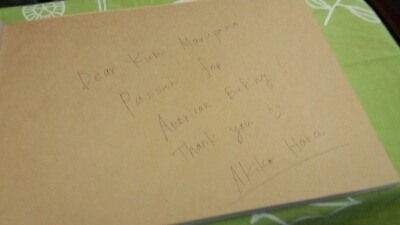 Dear Kumi Maruyama
Passion for
American Baking!
Thank you
Akiko Hara